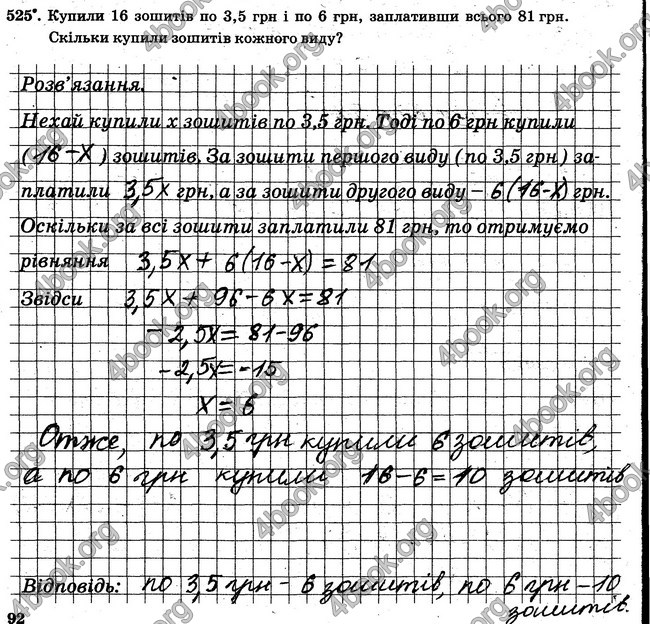 525°. Купили 16 зошитів по 3,5 грн і по 6 грн, заплативши всього 81 грн.
Скільки купили зошитів кожного виду?
Розв'язання.
Нехай купили x зошитів по 3,5 грн. Тоді по 6 грн купили
(16-x) зошитів. За зошити першого виду (по 3,5 грн) за-
платили 3,5x грн, а за зошити другого виду – 6(16-x) грн.
Оскільки за всі зошити заплатили 81 грн, то отримуємо
рівняння 3,5x + 6(16-x) = 81
Звідси 3,5x + 96 - 6x = 81
-2,5x = 81-96
-2,5x = -15
x = 6
Отже, по 3,5 грн купили 6 зошитів,
а по 6 грн купили 16-6=10 зошитів
Відповідь: по 3,5 грн - 6 зошитів, по 6 грн - 10
зошитів.
92
4book.org